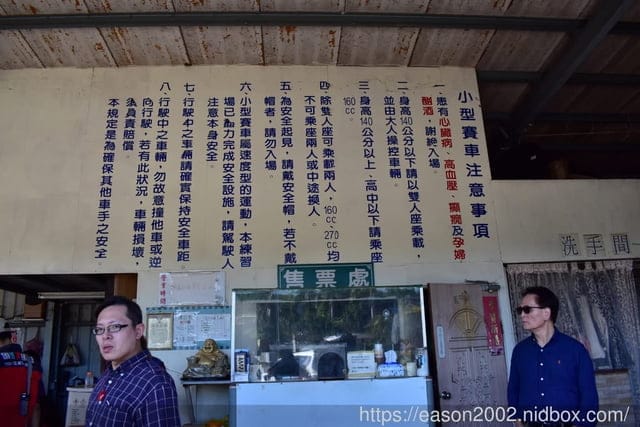 小型賽車注意事項
一、患有心臟病、高血壓、癲癇及孕婦
酗酒，謝絕入場。
二、身高140公分以下請以雙人座乘載，
並由大人操控車輛。
三、身高140公分以上、高中以下請乘座
160cc。
四、除雙人座可乘載兩人，160cc、270cc均
不可乘座兩人或中途換人。
五、為安全起見，請戴安全帽，若不戴
帽者，請勿入場。
六、小型賽車屬速度型的運動，本練習
場已盡力完成安全設施，請駕駛人
注意本身安全。
七、行駛中之車輛請確實保持安全車距。
八、行駛中之車輛，勿故意撞他車或逆
向行駛，若有此狀況，車輛損壞，
須負責賠償。
本規定是為確保其他車手之安全。
售票處
洗手間
https://eason2002.nidbox.com/